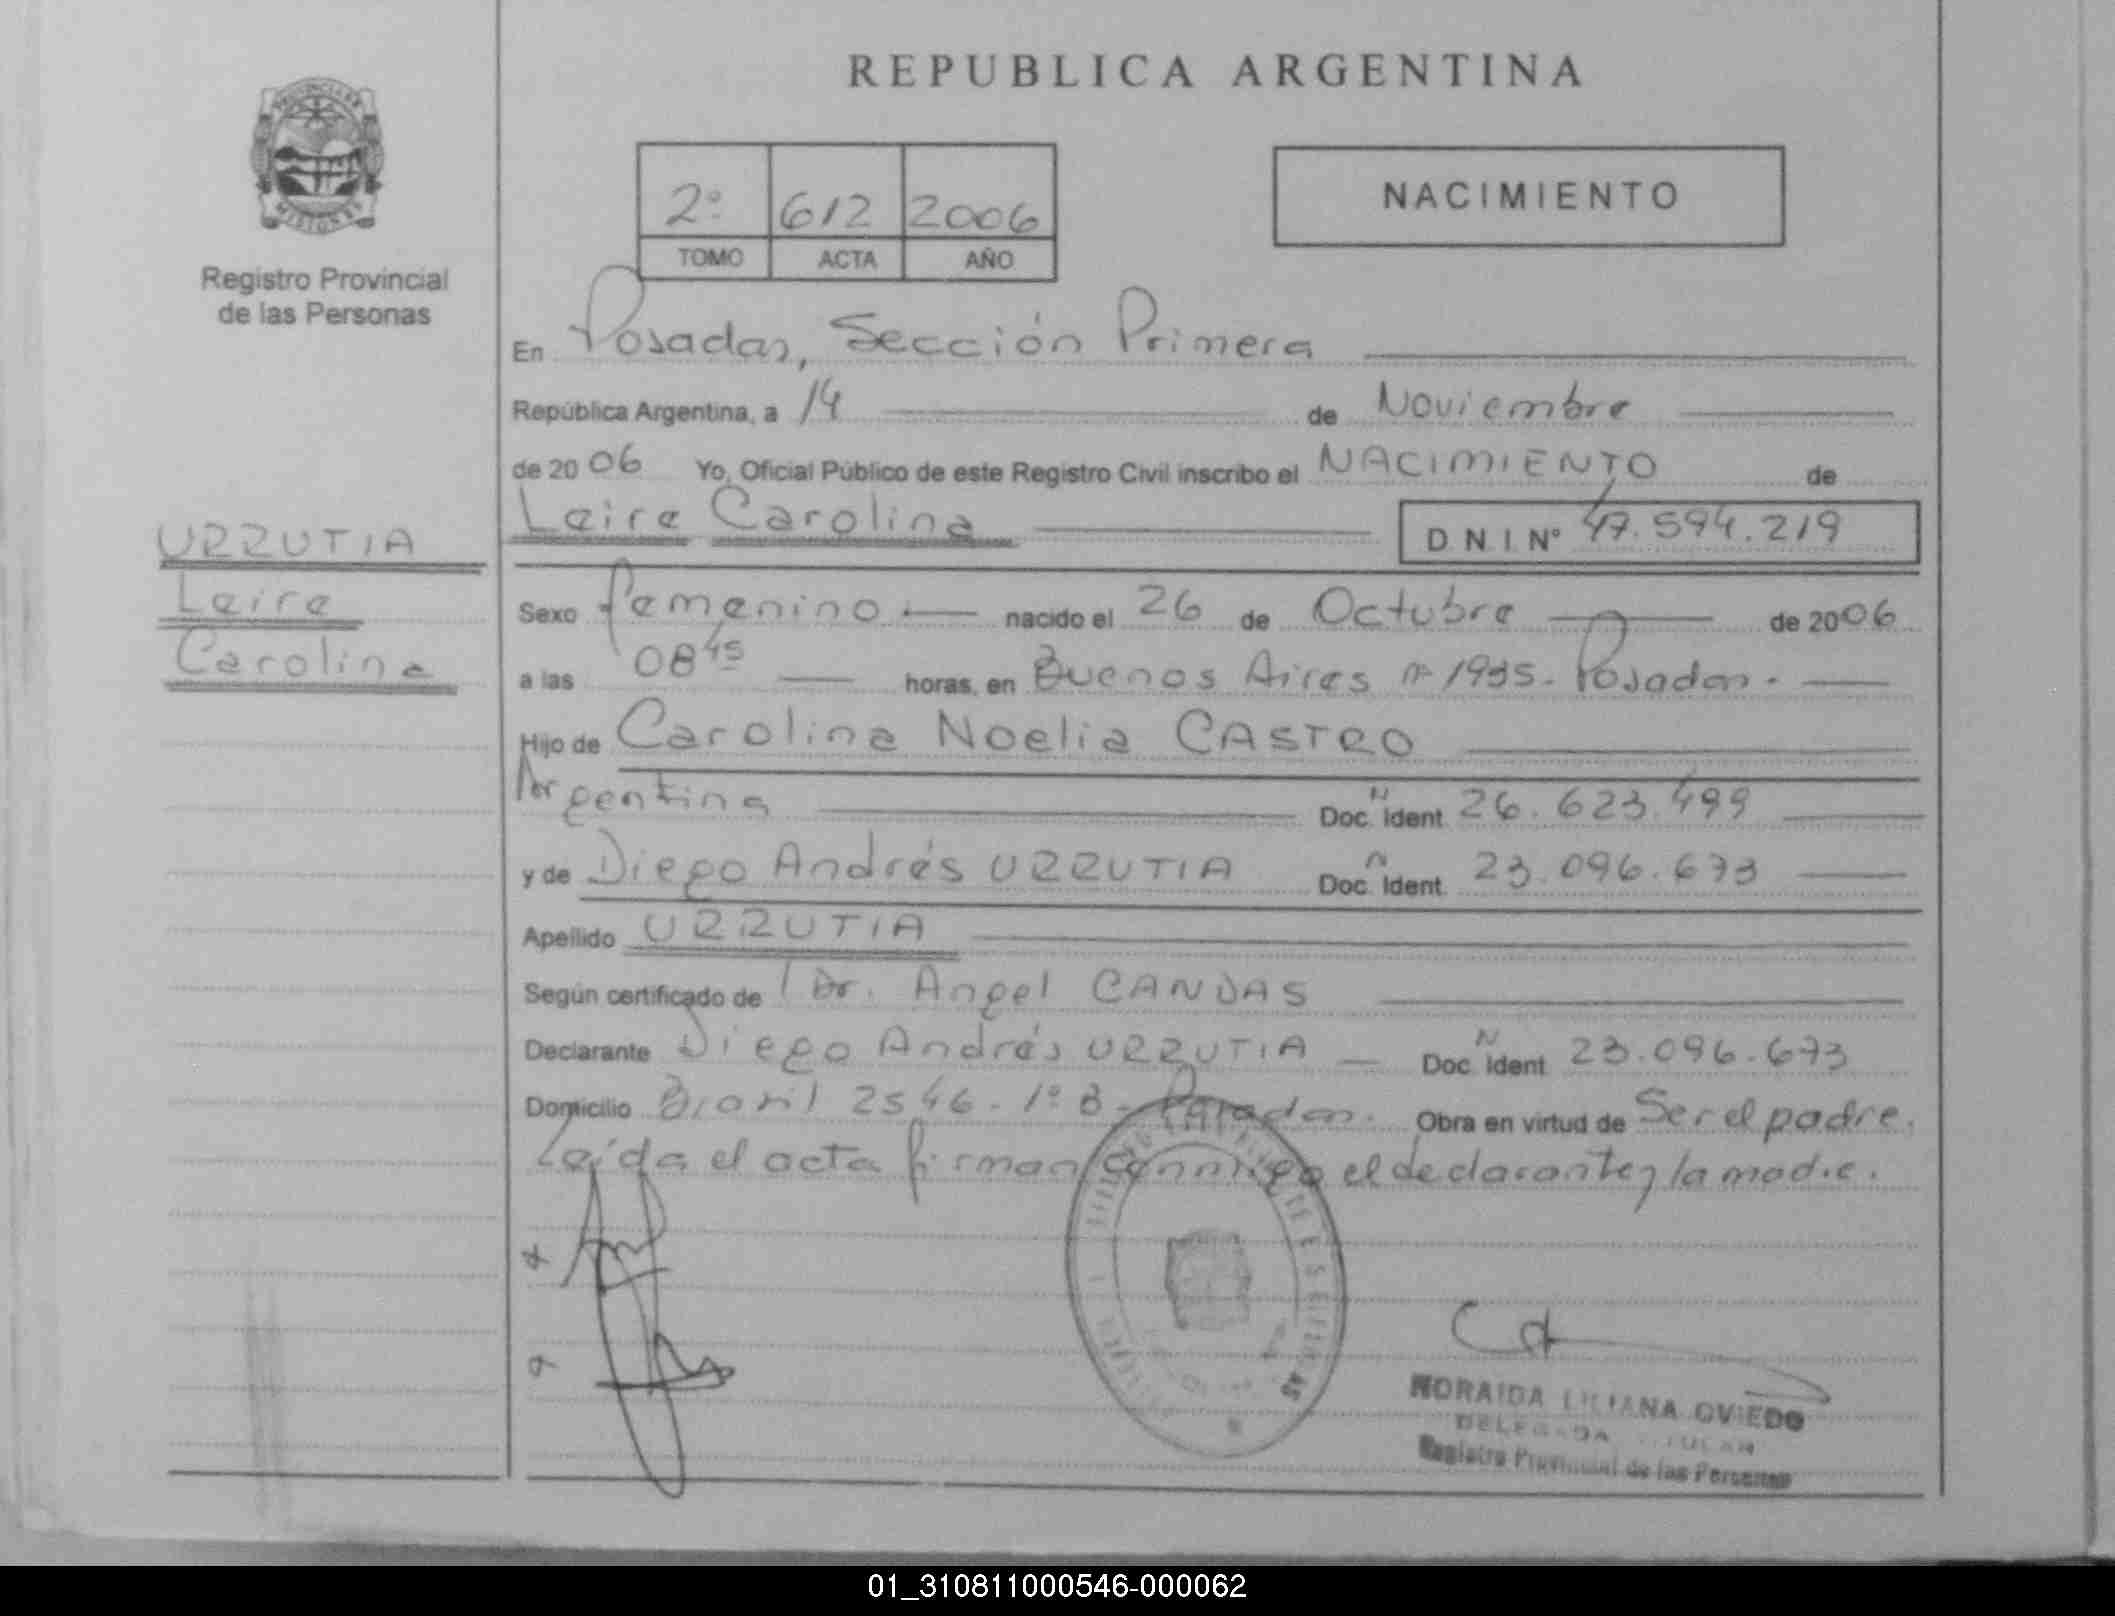 REPUBLICA ARGENTINA
PROVINCIA DE
MISIONES
Registro Provincial
de las Personas
2º 612 2006
TOMO ACTA AÑO
NACIMIENTO
En Posadas, Sección Primera
República Argentina, a 14 de Noviembre
de 2006 Yo, Oficial Público de este Registro Civil inscribo el NACIMIENTO de
Leire Carolina D.N.I. Nº 47.594.219
URRUTIA
Leire
Carolina
Sexo femenino nacido el 26 de Octubre de 2006
a las 08 45 horas, en Buenos Aires nº 1935. Posadas.
Hijo de Carolina Noelia CASTRO
Argentina Doc. Ident. N 26.623.499
y de Diego Andrés URRUTIA Doc. Ident. N 23.096.673
Apellido URRUTIA
Según certificado de Dr. Angel CANDAS
Declarante Diego Andrés URRUTIA Doc. Ident. N 23.096.673
Domicilio Brasil 2546. 1º B. Posadas. Obra en virtud de Ser el padre.
Leída el acta firman conmigo el declarante y la madre.
LILIANA OVIEDO
DELEGADA TITULAR
Registro Provincial de las Personas
01_310811000546-000062